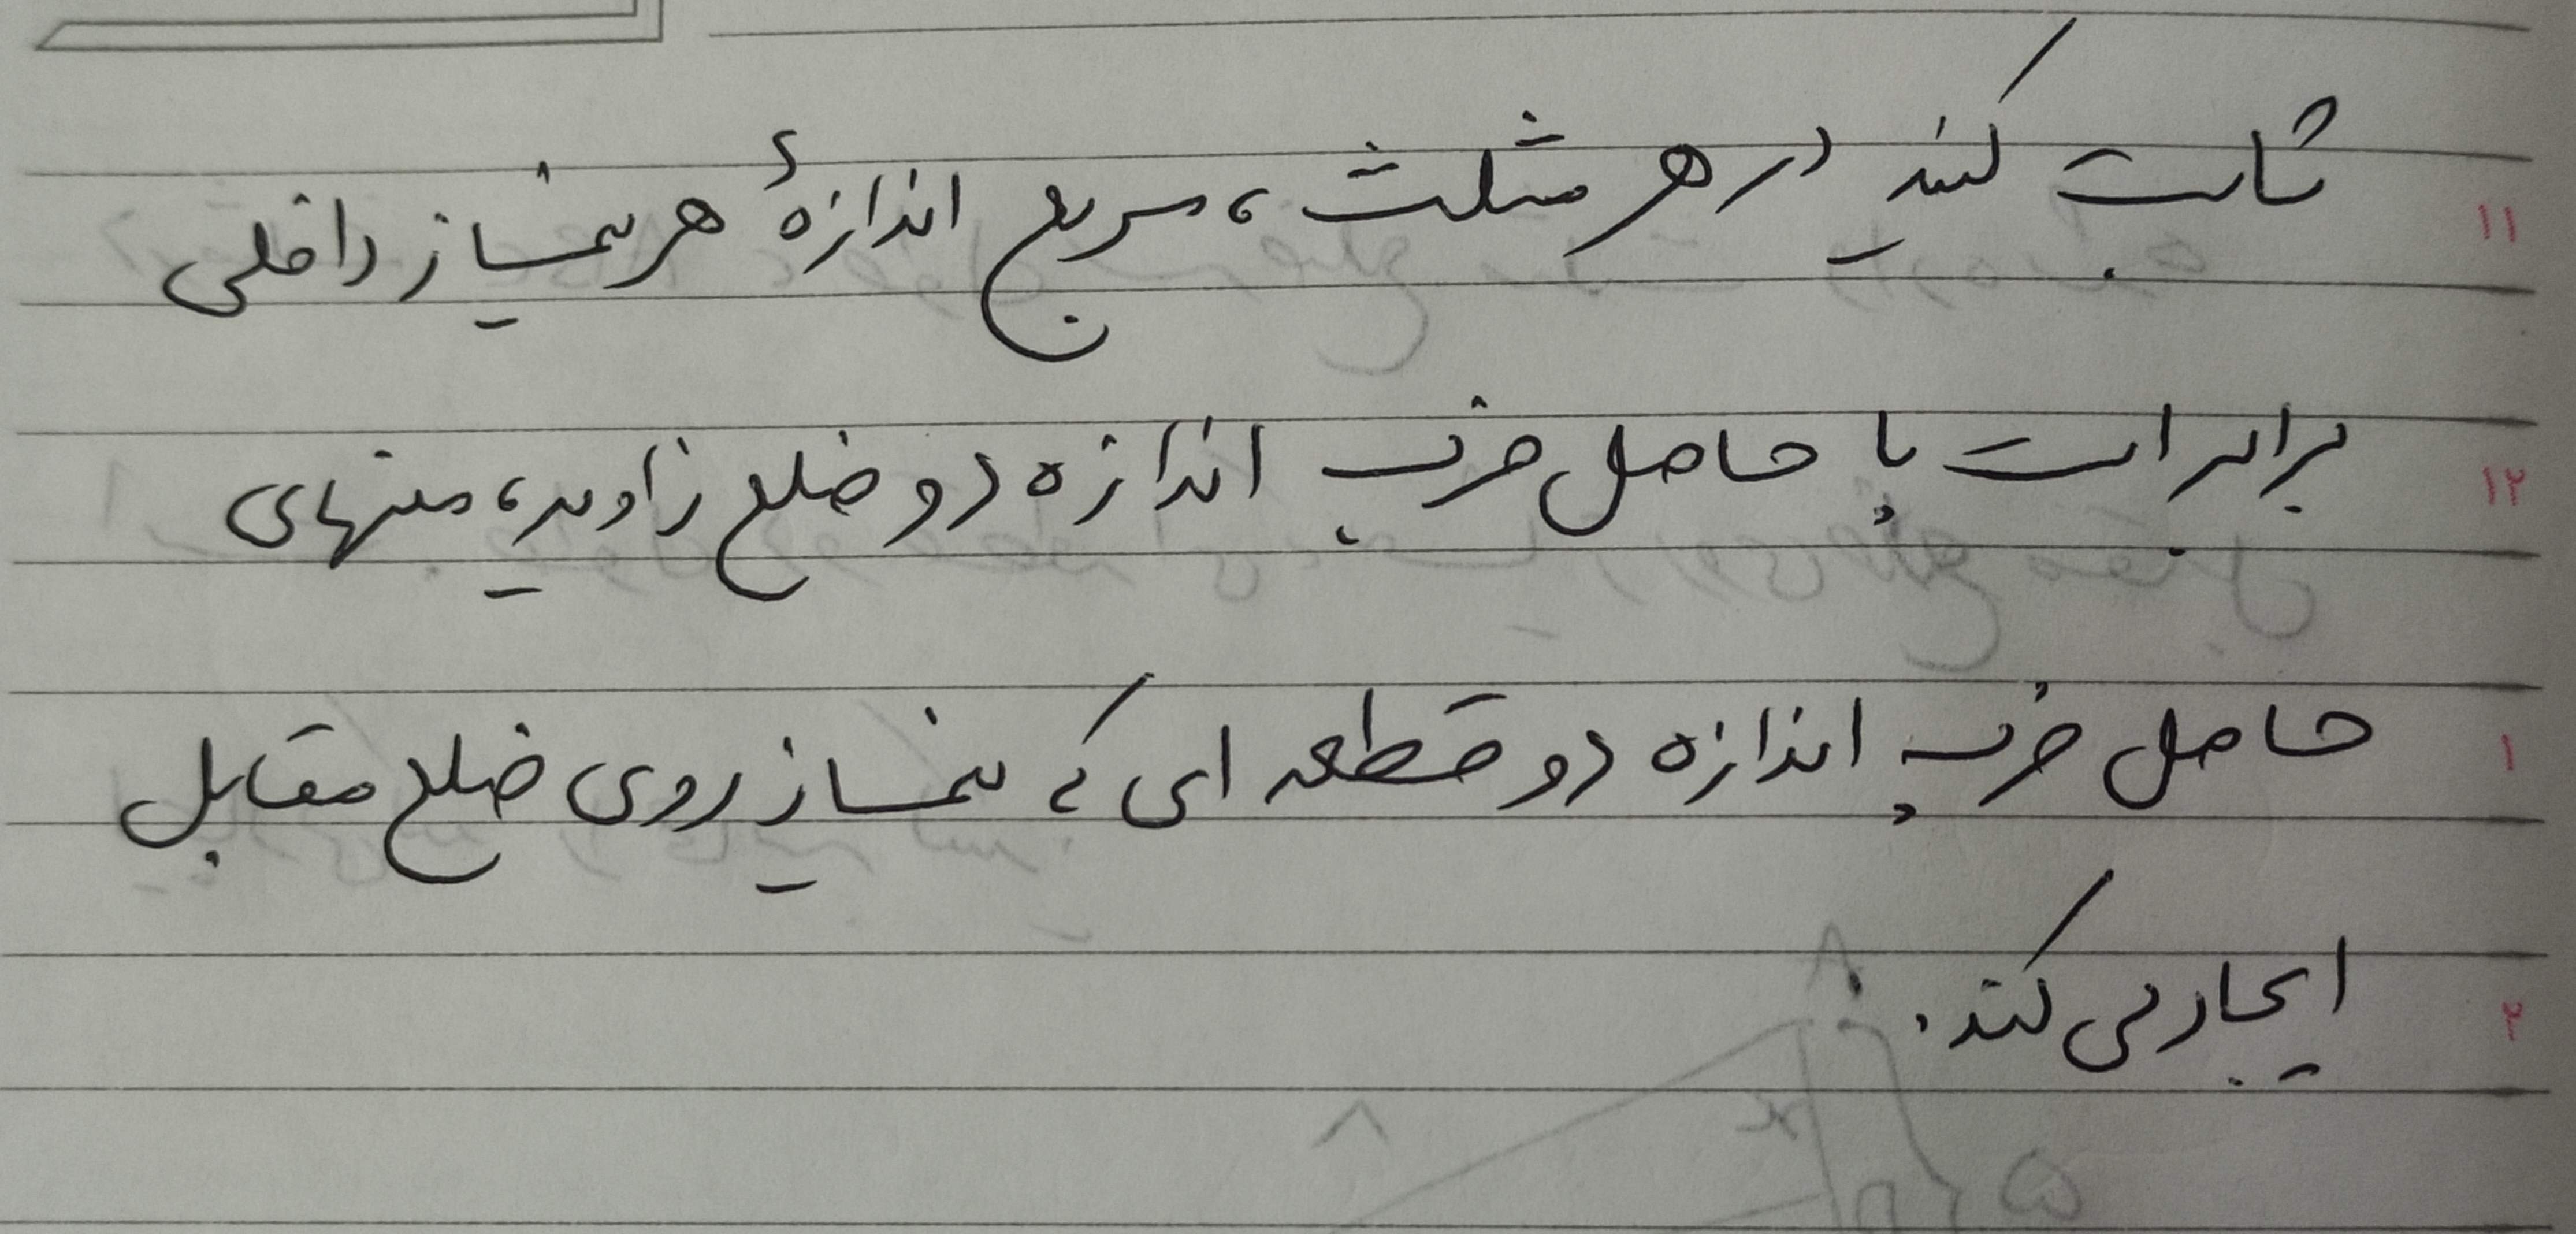 ثابت کنید در هر مثلث، مربع اندازهٔ هر نیمساز داخلی
۱۱
برابر است با حاصل ضرب اندازه دو ضلع زاویه، منهای
۱۲
حاصل ضرب اندازه دو قطعه ای که نیمساز روی ضلع مقابل
۱
ایجاد می کند.
۲